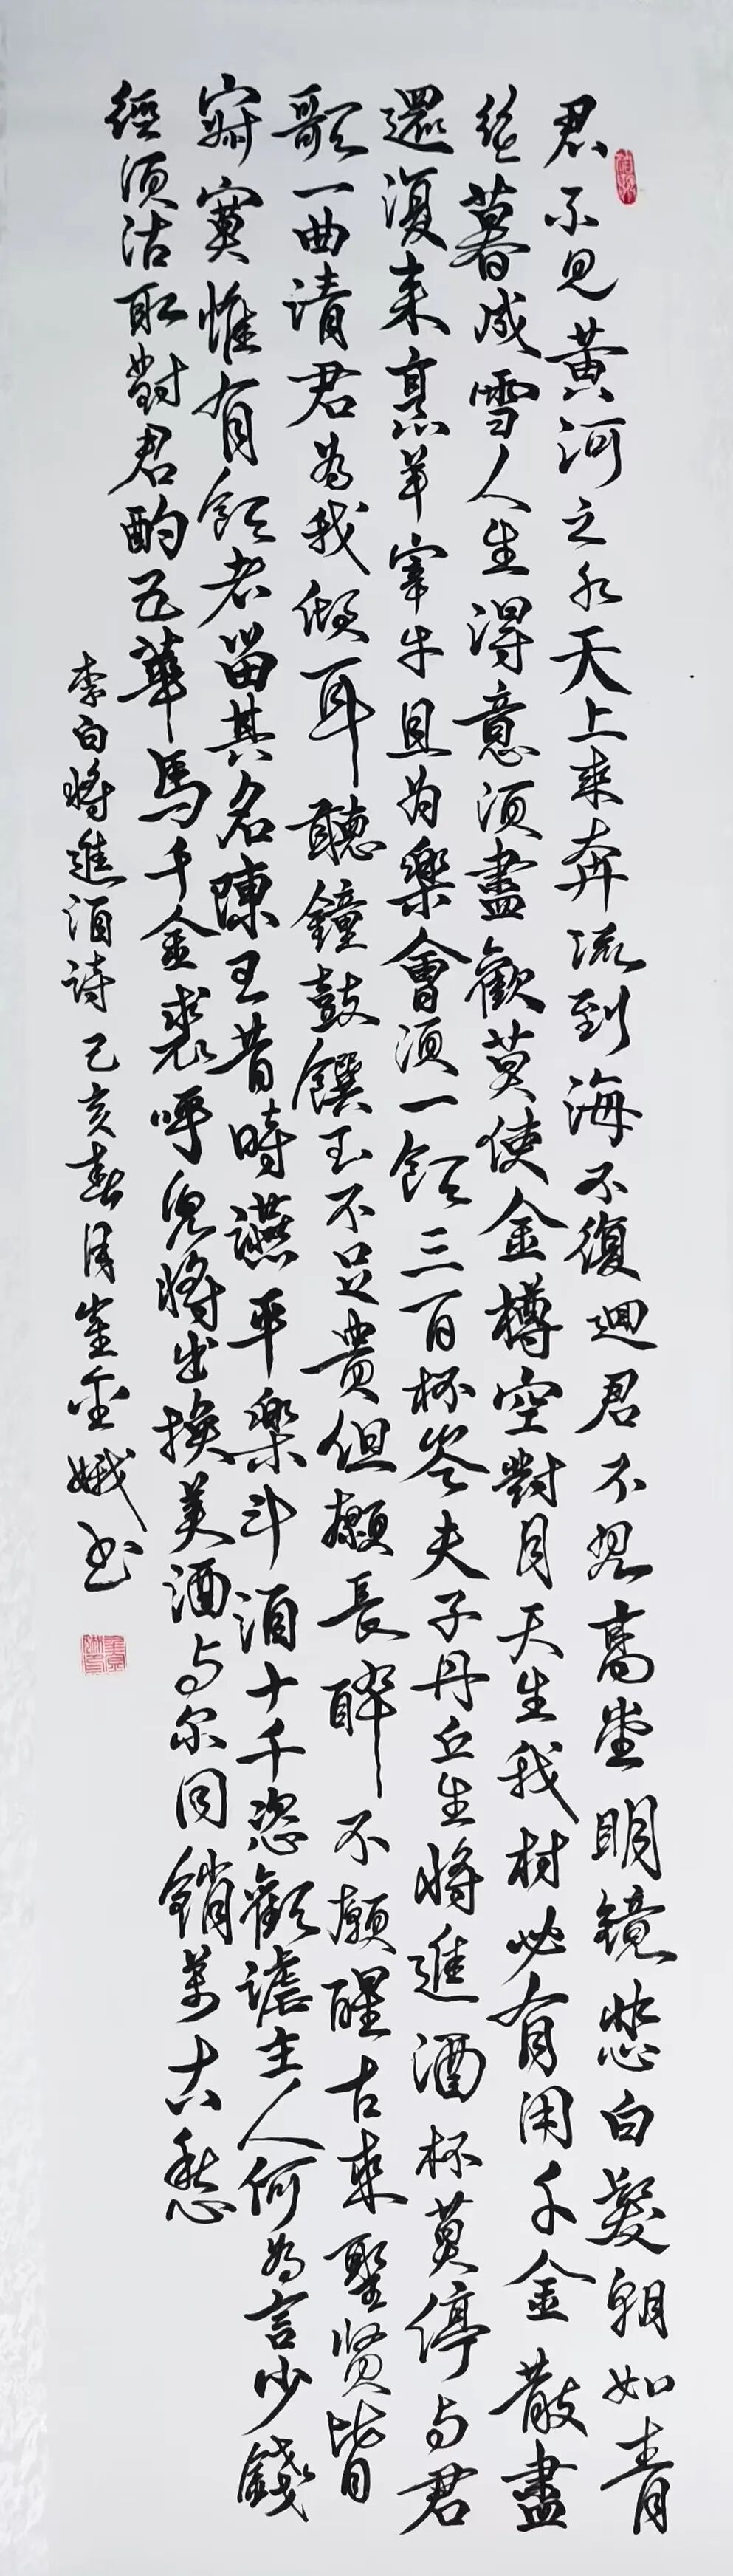 君不見黃河之水天上來奔流到海不復迴君不見高堂明鏡悲白髮朝如青
絲暮成雪人生得意須盡歡莫使金樽空對月天生我材必有用千金散盡
還復來烹羊宰牛且為樂會須一飲三百杯岑夫子丹丘生將進酒杯莫停與君
歌一曲請君為我傾耳聽鐘鼓饌玉不足貴但願長醉不願醒古來聖賢皆
寂寞惟有飲者留其名陳王昔時讌平樂斗酒十千恣歡謔主人何為言少錢
徑須沽取對君酌五華馬千金裘呼兒將出換美酒与尔同銷萬古愁
李白將進酒詩己亥春月崔金娥书